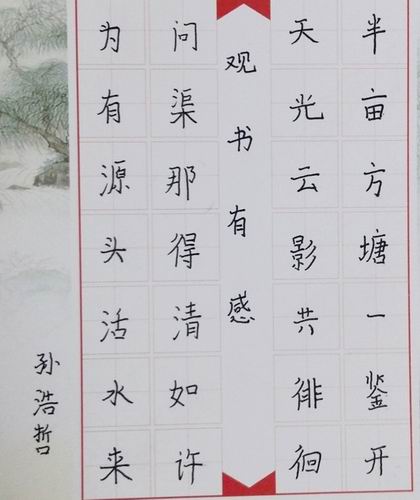 半亩方塘一鉴开
天光云影共徘徊
观书有感
问渠那得清如许
为有源头活水来
孙浩哲